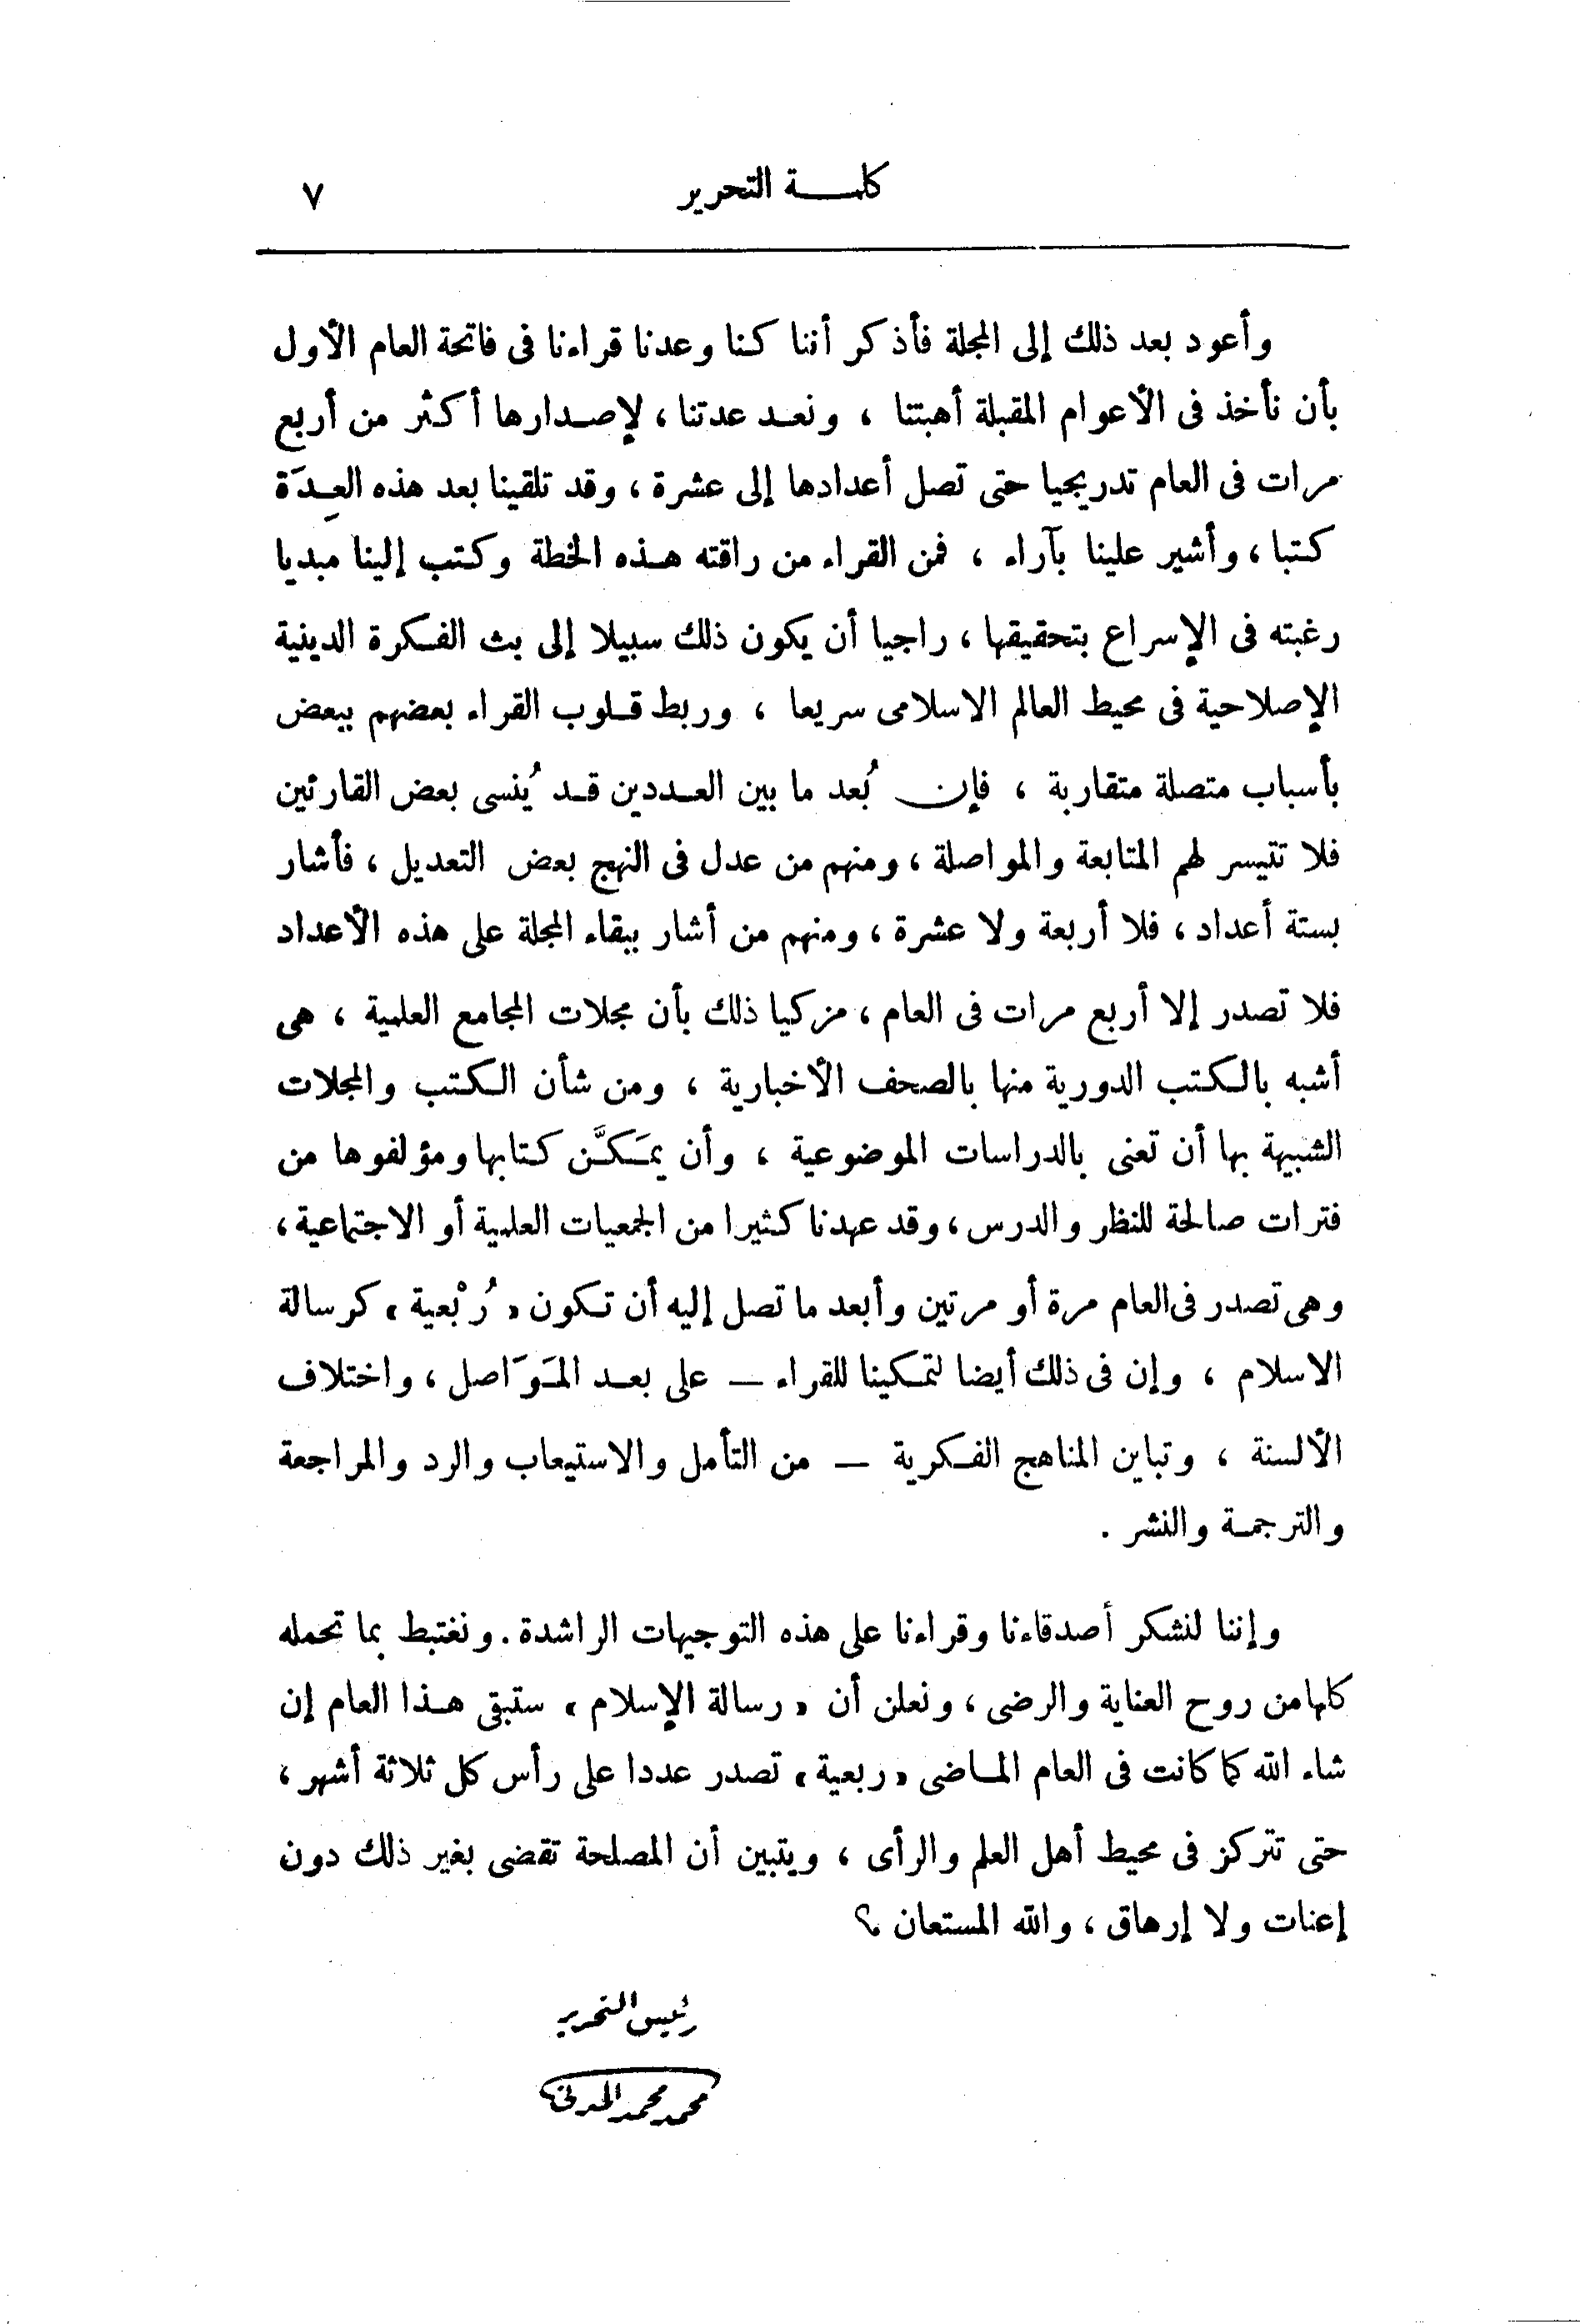 كلمة التحرير ٧
وأعود بعد ذلك إلى المجلة فأذكر أننا كنا وعدنا قراءنا فى فاتحة العام الأول
بأن نأخذ فى الأعوام المقبلة أهبتنا ، ونعد عدتنا ، لإصدارها أكثر من أربع
مرات فى العام تدريجيا حتى تصل أعدادها إلى عشرة ، وقد تلقينا بعد هذه العِدَة
كتبا ، وأشير علينا بآراء ، فمن القراء من راقته هذه الخطة وكتب إلينا مبديا
رغبته فى الإسراع بتحقيقها ، راجيا أن يكون ذلك سبيلا إلى بث الفكرة الدينية
الإصلاحية فى محيط العالم الاسلامى سريعا ، وربط قلوب القراء بعضهم ببعض
بأسباب متصلة متقاربة ، فإن بُعد ما بين العددين قد يُنسى بعض القارئين
فلا تتيسر لهم المتابعة والمواصلة ، ومنهم من عدل فى النهج بعض التعديل ، فأشار
بستة أعداد ، فلا أربعة ولا عشرة ، ومنهم من أشار ببقاء المجلة على هذه الأعداد
فلا تصدر إلا أربع مرات فى العام ، مزكيا ذلك بأن مجلات المجامع العلمية ، هى
أشبه بالكتب الدورية منها بالصحف الأخبارية ، ومن شأن الكتب والمجلات
الشبيهة بها أن تعنى بالدراسات الموضوعية ، وأن يمَكَّن كتابها ومؤلفوها من
فترات صالحة للنظر والدرس ، وقد عهدنا كثيرا من الجمعيات العلمية أو الاجتماعية ،
وهى تصدر فى العام مرة أو مرتين وأبعد ما تصل إليه أن تكون « رُبْعية » كرسالة
الاسلام ، وإن فى ذلك أيضا لتمكينا للقراء — على بعد المَوَاصل ، واختلاف
الألسنة ، وتباين المناهج الفكرية — من التأمل والاستيعاب والرد والمراجعة
والترجمة والنشر .
وإننا لنشكر أصدقاءنا وقراءنا على هذه التوجيهات الراشدة . ونغتبط بما تحمله
كلها من روح العناية والرضى ، ونعلن أن « رسالة الإسلام » ستبقى هذا العام إن
شاء الله كما كانت فى العام الماضى « ربعية » تصدر عددا على رأس كل ثلاثة أشهر ،
حتى تتركز فى محيط أهل العلم والرأى ، ويتبين أن المصلحة تقضى بغير ذلك دون
إعنات ولا إرهاق ، والله المستعان ؟
رئيس التحرير
محمد محمد المدنى